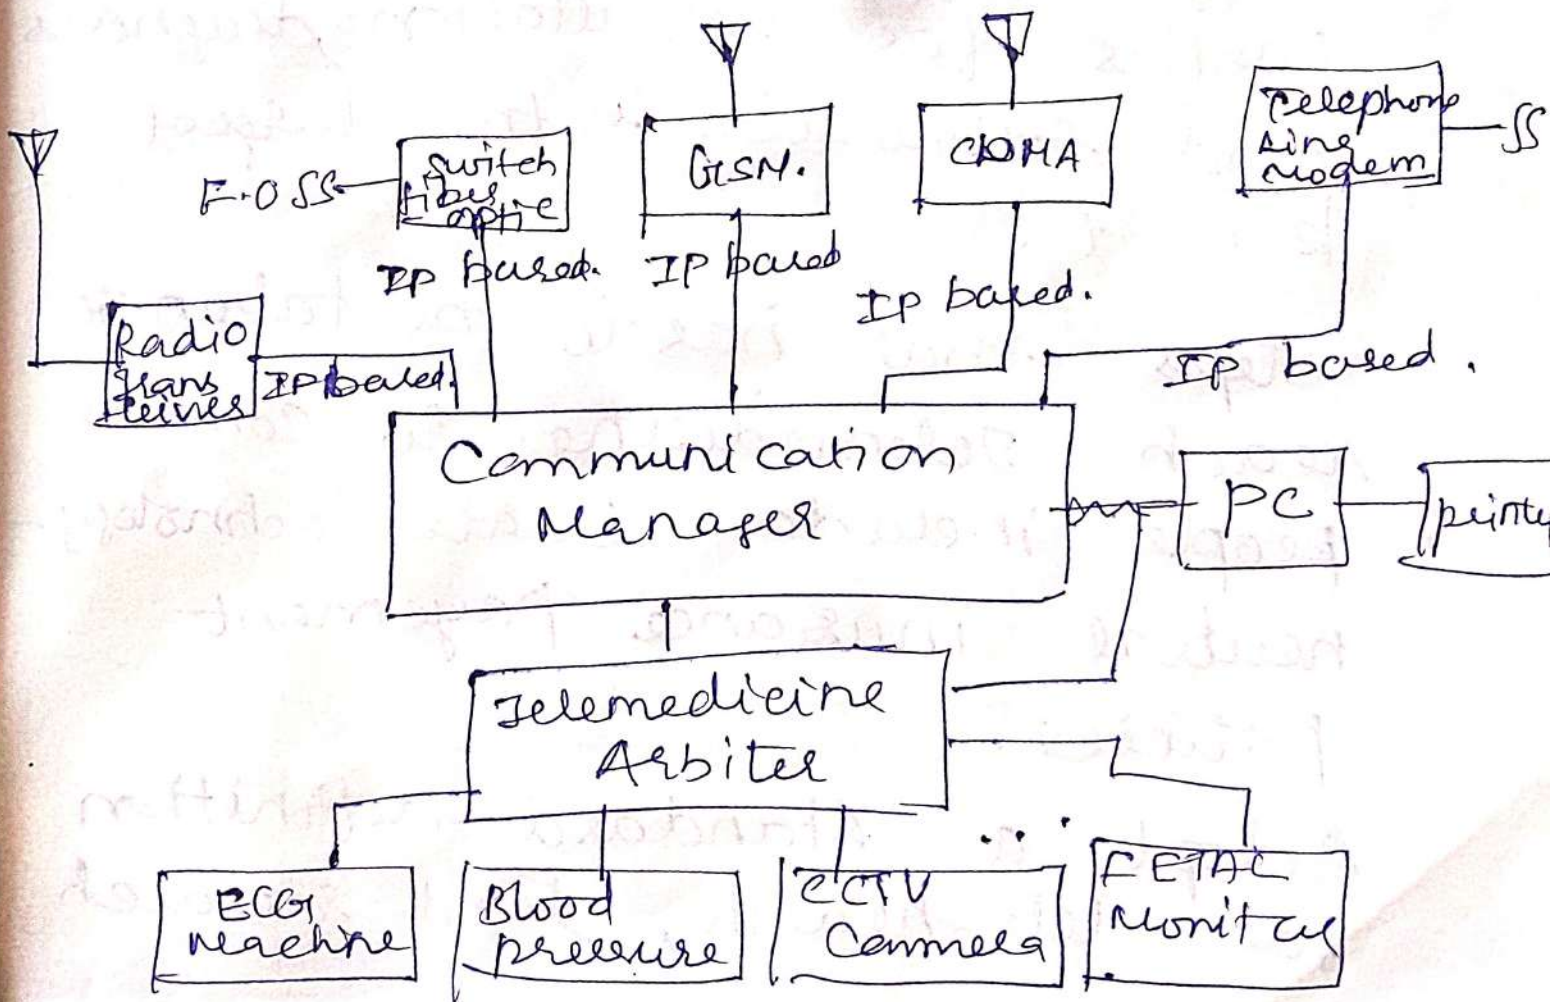 F.O
Switch
fiber
optic
GSM.
CDMA
Telephone
Line
Modem
IP based.
IP based
IP based.
Radio
Trans
ceives
IP based.
IP based.
Communication
Manager
PC
printer
Telemedicine
Arbiter
ECG
Machine
Blood
pressure
CCTV
Cammera
FETAL
Monitor